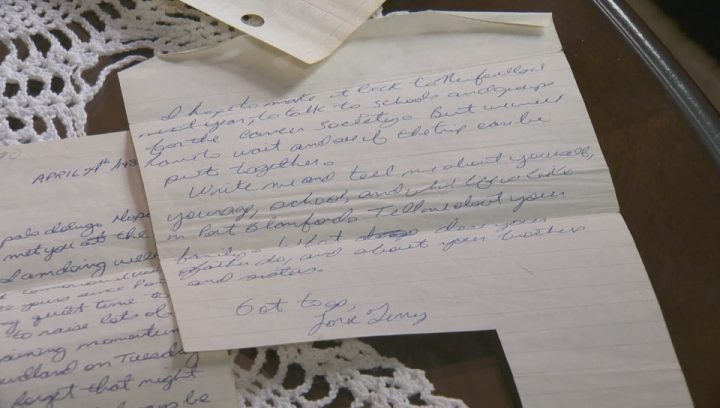 APRIL 29th 1980
pals doing. I hope
met you at the
I am doing well
quiet time
to raise lots of
gaining momentum
on Tuesday
forget that night
be
I hope to make it back to Newfoundland
next year, to talk to schools and groups
for the Cancer Society. But we will
have to wait and see if the trip can be
put together.
Write me and tell me about yourself,
your age, school, and what life is like
in Port Blanford. Tell me about your
family. What does your
father do, and about your brothers
and sisters.
Got to go,
Love Terry